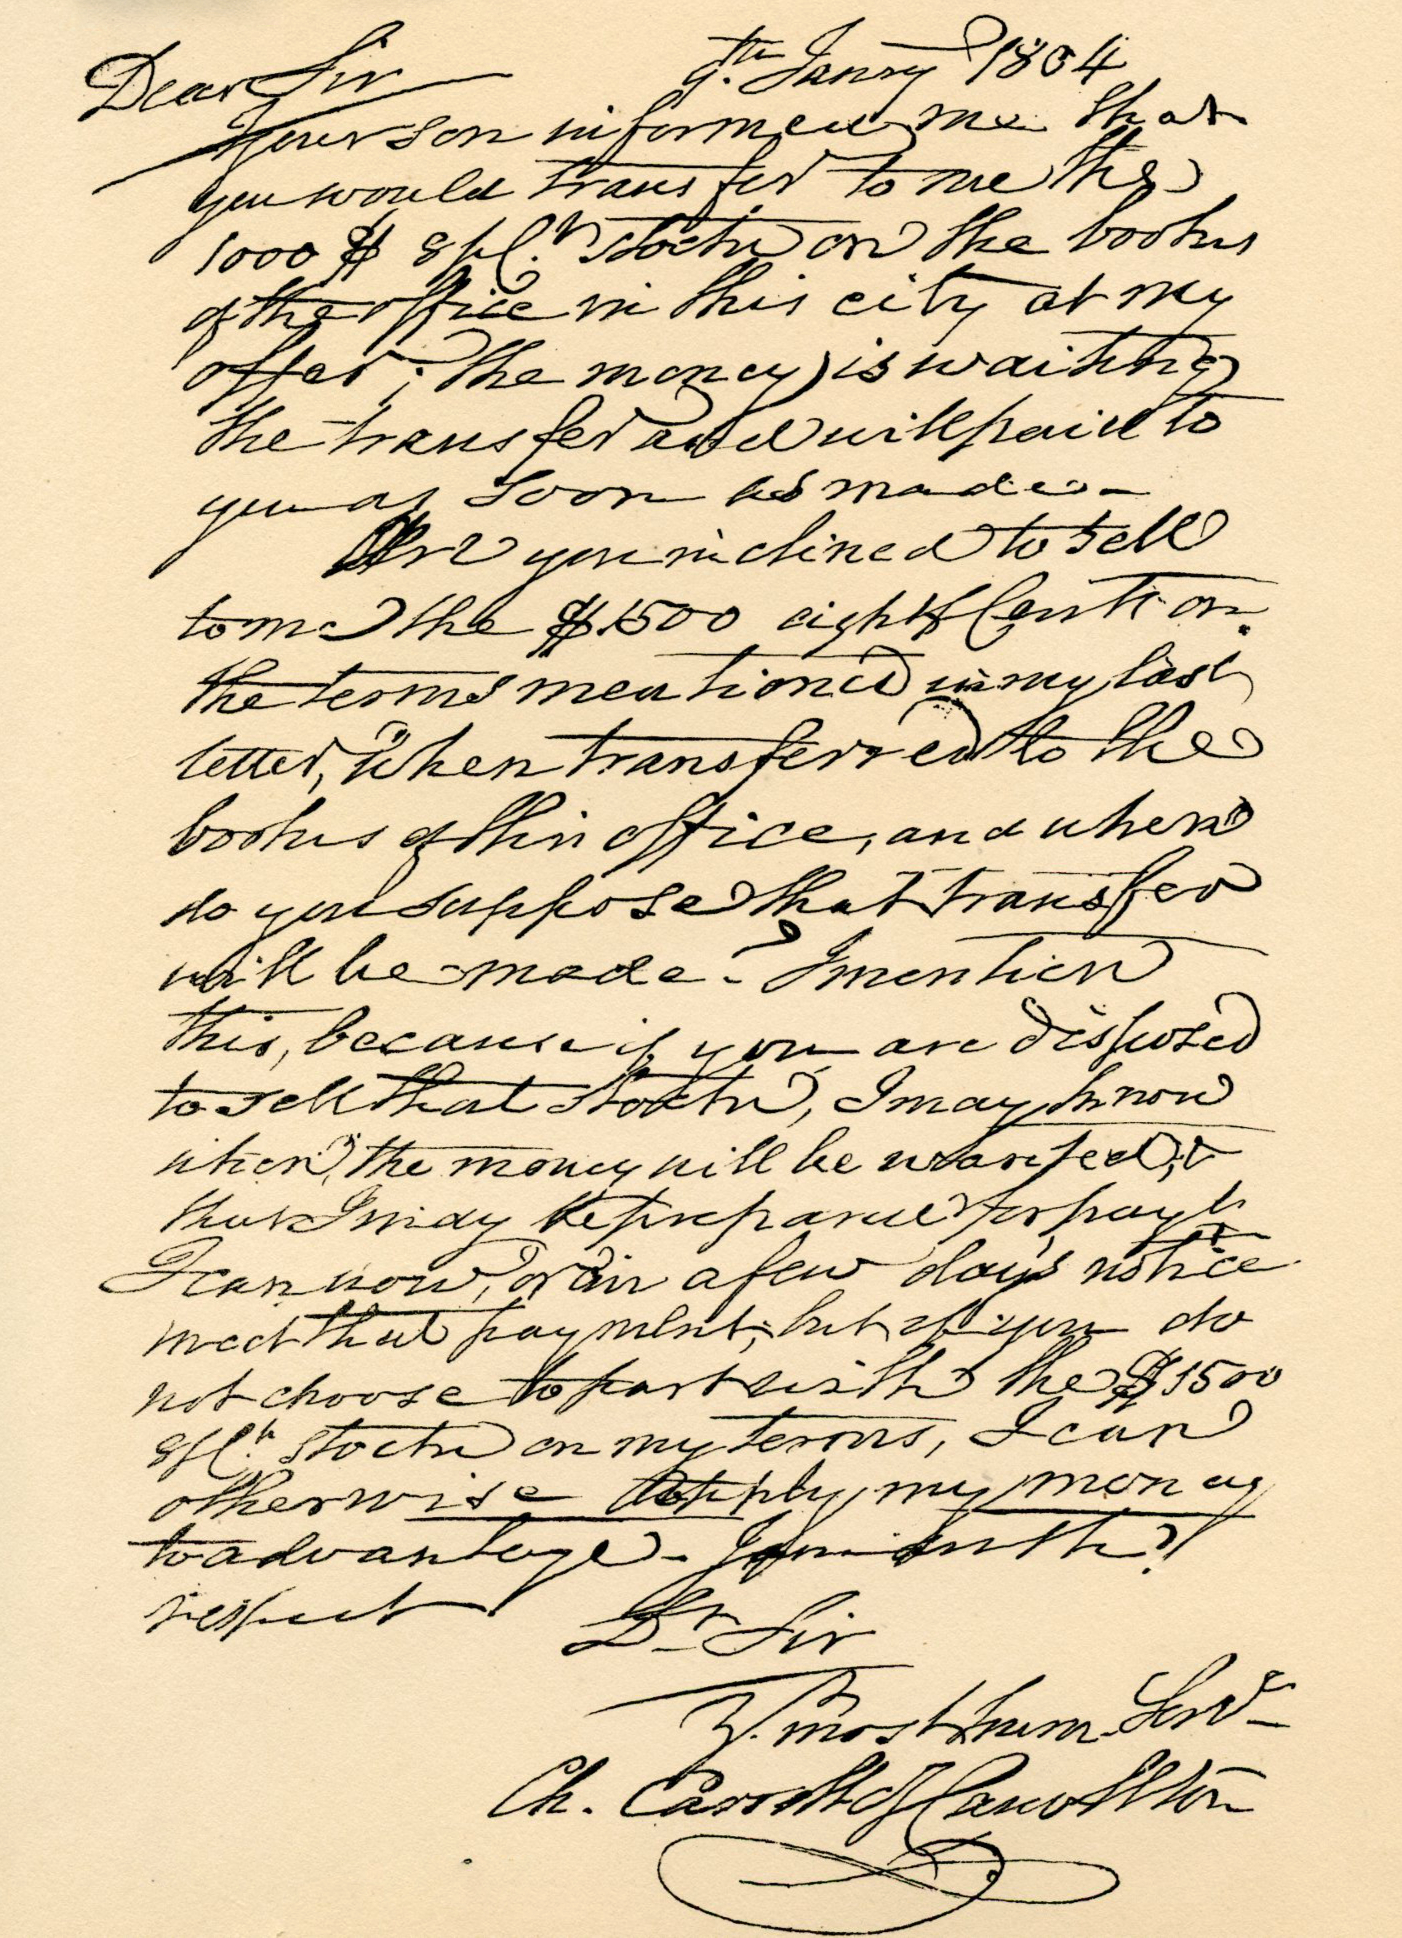 Dear Sir 9.th Janry 1804
Your son informed me that
you would transfer to me the
1000 $ 8 pC.t stock on the books
of the office in this city at my
offer; the money is waiting
the transfer and will paid to
you as soon as made.
Are you inclined to sell
to me the $1500 eight p Cent on
the terms mentioned in my last
letter, "when transferred to the
books of this office, and when
do you suppose that transfer
will be made? I mention
this, because if you are disposed
to sell that stock, I may know
when" the money will be wanted, &
that I may be prepared for payt.
I can now, or in a few days notice
meet that payment; but if you do
not choose to part with the $1500
8 pC.t stock on my terms, I can
otherwise apply my money
to advantage. I am with
respect
Dr Sir
Y. most hum. Servt
Ch. Carroll of Carrollton